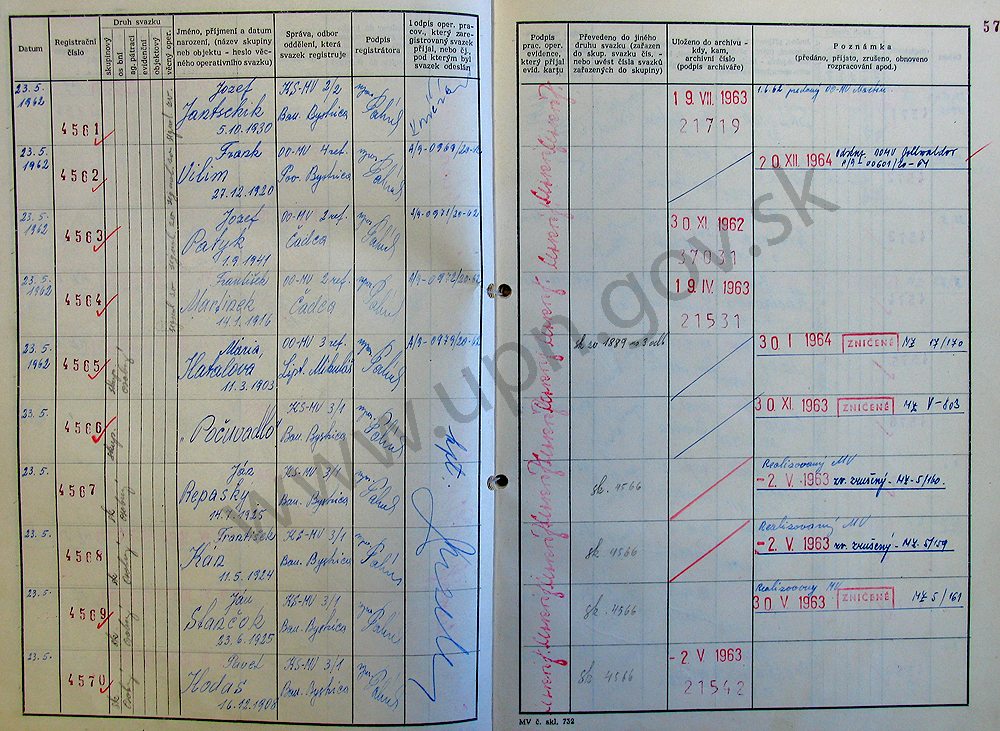 57
Datum
Registrační číslo
Druh svazku
skupinový
osobní
ag. pátrací
evidenční
objektový
věcný oper.
Jméno, příjmení a datum narození, (název skupiny neb objektu - heslo věcného operativního svazku)
Správa, odbor oddělení, která svazek registruje
Podpis registrátora
Podpis oper. prac., který zaregistrovaný svazek přijal, nebo čj. pod kterým byl svazek odeslán
Podpis prac. oper. evidence, který přijal evid. kartu
Převedeno do jiného druhu svazku (zařazen do skup. svazku čís. - nebo uvést čísla svazků zařazených do skupiny)
Uloženo do archivu - kdy, kam, archivní číslo (podpis archiváře)
Poznámka
(předáno, přijato, zrušeno, obnoveno rozpracování apod.)
23.5. 1962
4561
Jozef
Jantschik
5.10.1930
KS-MV 2/2
Ban. Bystrica
19. VII. 1963
21719
23.5. 1962
4562
Frank
Vilim
27.12.1920
OO-MV 4 ref.
Pov. Bystrica
A/9-0969/20-62
20 XII. 1964
A/9-00601/20-64
23.5. 1962
4563
Jozef
Patyk
1.9.1941
OO-MV 2 ref.
Čadca
A/9-0971/20-62
30 XI. 1962
37031
23.5. 1962
4564
František
Martinek
14.1.1916
OO-MV 2 ref.
Čadca
A/9-0972/20-62
19. IV. 1963
21531
23.5. 1962
4565
Mária,
11.3.1903
OO-MV 3 ref.
Lipt. Mikuláš
A/9-0979/20-62
30. I 1964
ZNIČENÉ
MZ 17/170
23.5.
4566
skup.
"Počúvadlo"
KS-MV 3/1
Ban. Bystrica
30. XI. 1963
ZNIČENÉ
MZ V-603
23.5.
4567
Ján
Repaský
14.1.1925
KS-MV 3/1
Ban. Bystrica
sk. 4566
Realizovaný MV
-2. V. 1963 zv. zrušený - MZ-5/160.
23.5.
4568
František
Kán
11.5.1924
KS-MV 3/1
Ban. Bystrica
sk 4566
Realizovaný MV
-2. V. 1963 zv. zrušený - MZ. 5/159
23.5.
4569
Ján
Stančok
23.6.1925
KS-MV 3/1
Ban. Bystrica
sk. 4566
Realizovaný MV
30. V 1963
ZNIČENÉ
MZ 5/161
23.5.
4570
Pavel
Hodas
16.12.1908
KS-MV 3/1
Ban. Bystrica
sk 4566
-2. V 1963
21542
MV č. skl. 732
www.upn.gov.sk